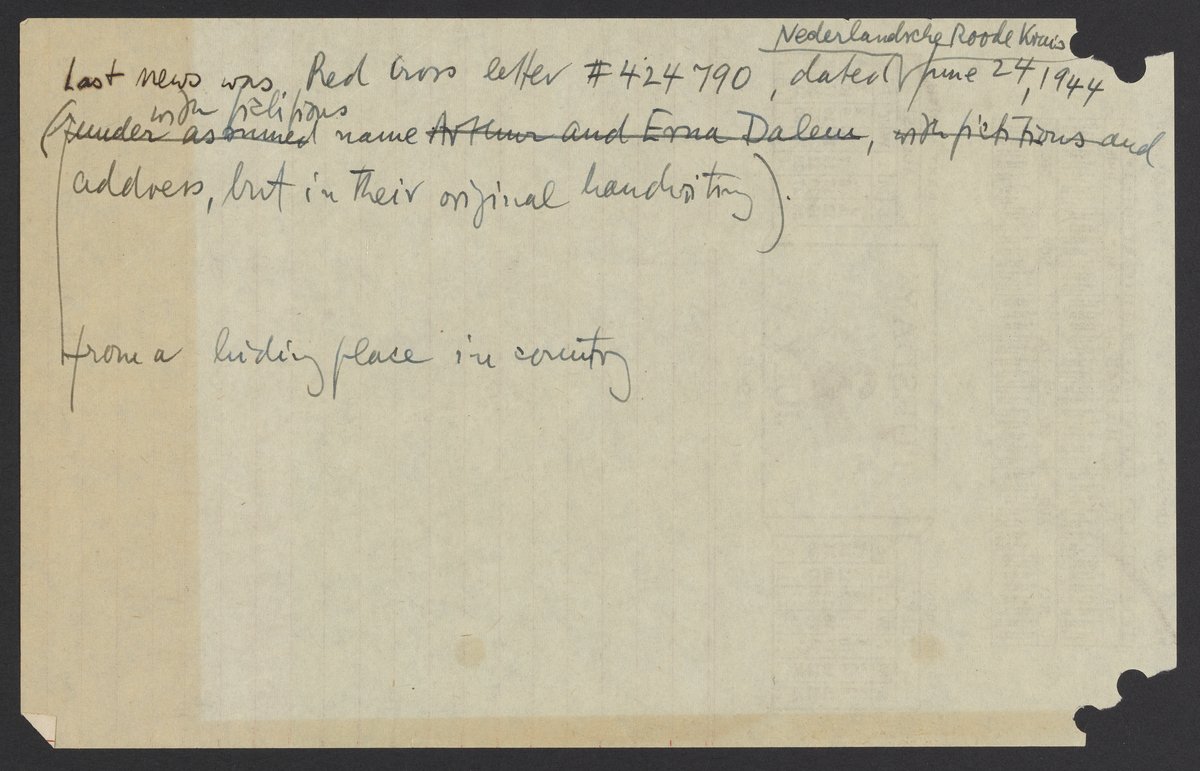 Nederlandsche Roode Kruis
Last news was Red Cross letter #424790, dated June 24, 1944
with fictitious
(under assumed name Arthur and Erna Dalem, with fictitious and
address, but in their original handwriting).
from a hiding place in country